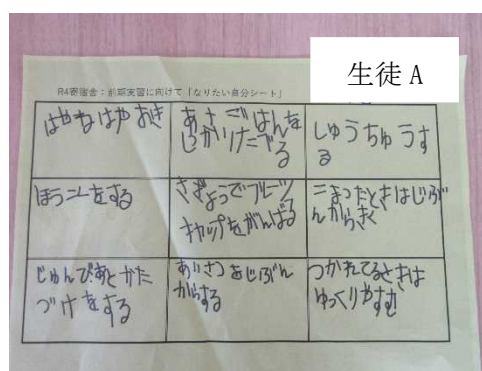 生徒 A
R4寄宿舎:前期実習に向けて「なりたい自分シート」
はやねはやおき
あさごはんを
しっかりたべ
る
しゅうちゅうす
る
ほうこくをする
さぎょうでフルーツ
キャップをがんばる
こまったときはじぶ
んからきく
じゅんびあとかた
づけをする
あいさつをじぶん
からする
つかれてるときは
ゆっくりやすむ